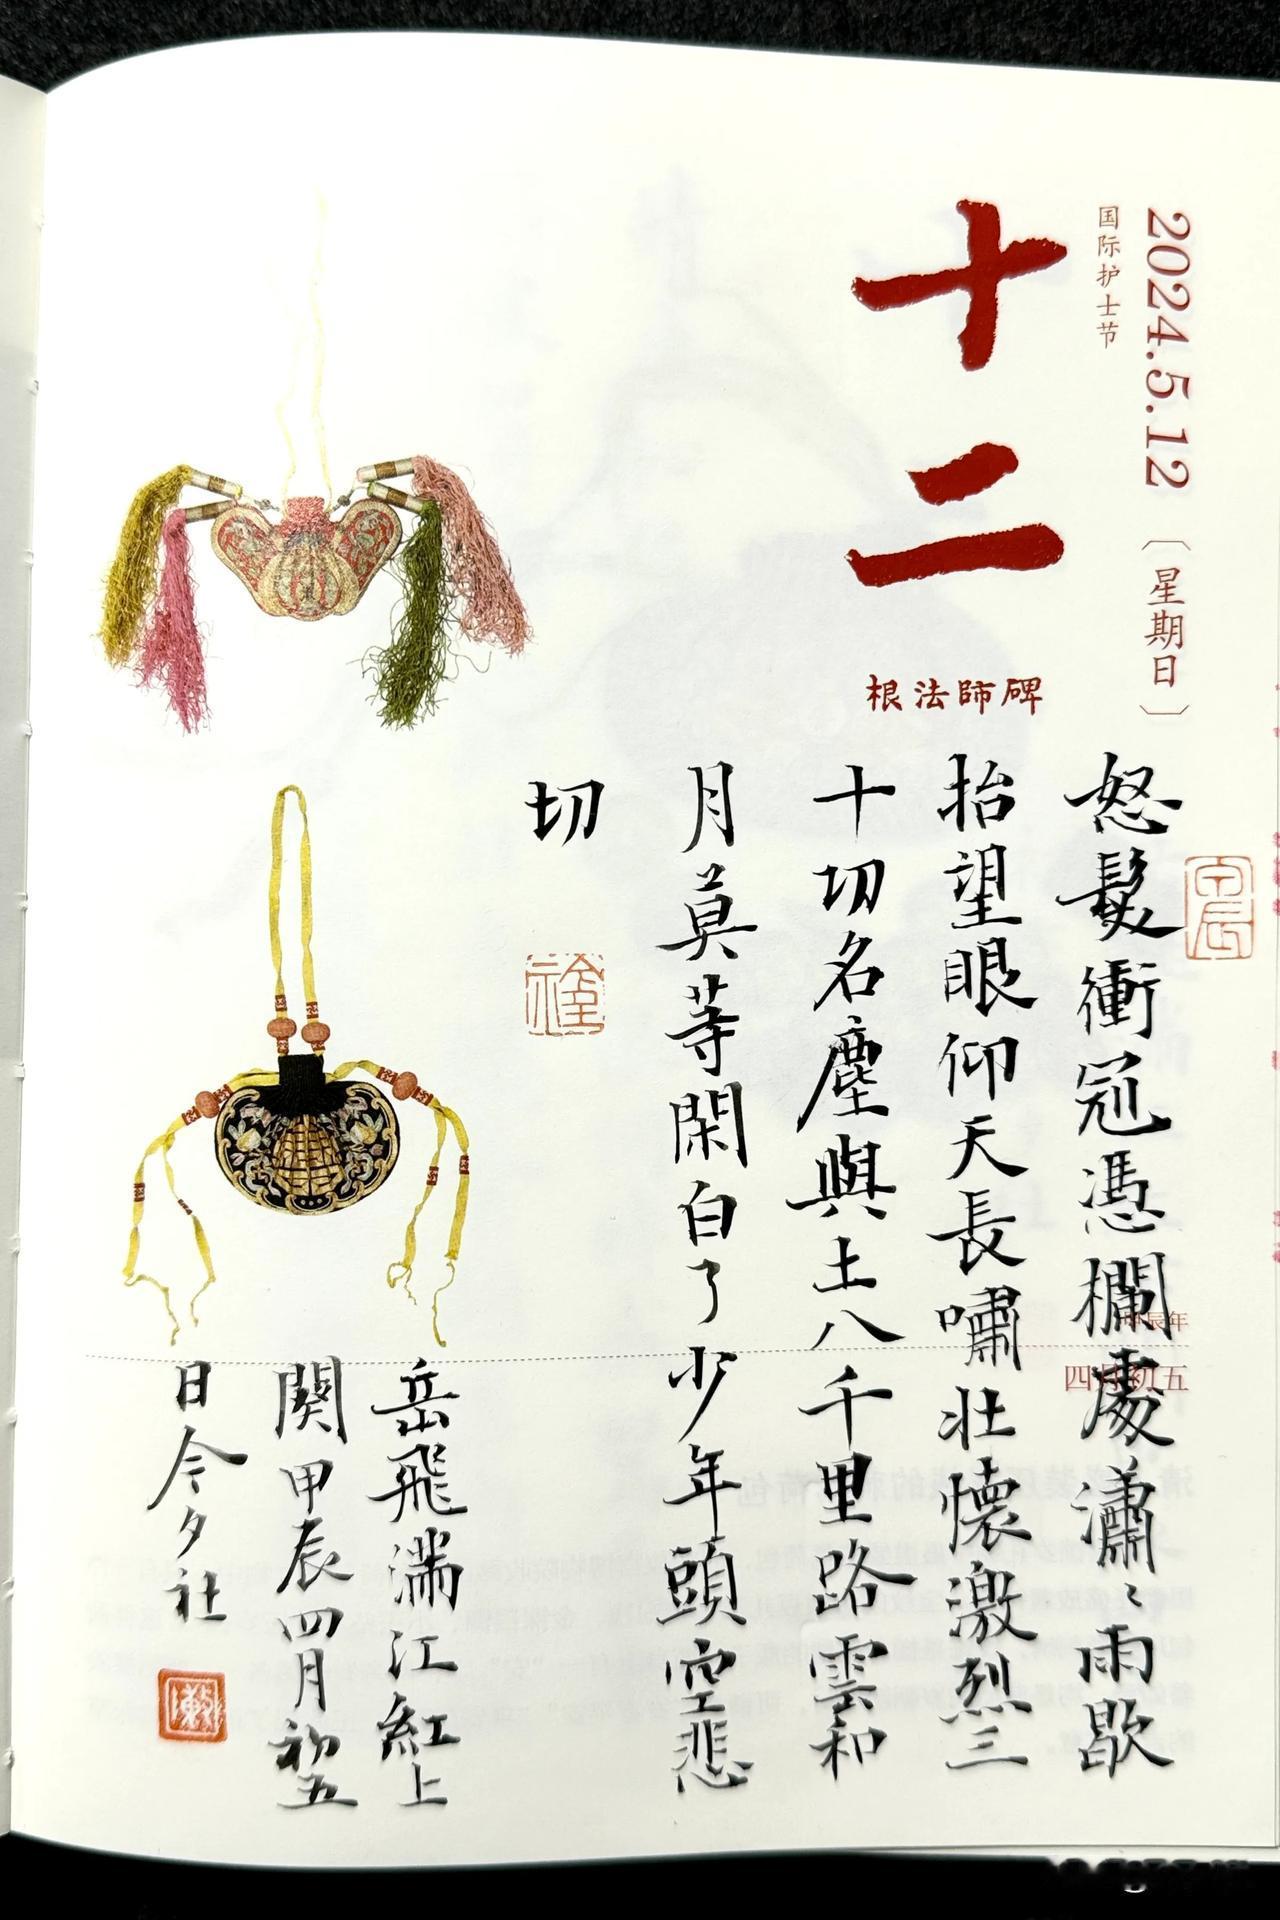 2024.5.12〔星期日〕
国际护士节
十二
根法師碑
甲辰年
四月初五
怒髮衝冠憑欄處瀟〻雨歇
抬望眼仰天長嘯壯懷激烈三
十切名塵與土八千里路雲和
月莫等閑白了少年頭空悲
切
岳飛滿江紅上
闋甲辰四月初五
日今夕社